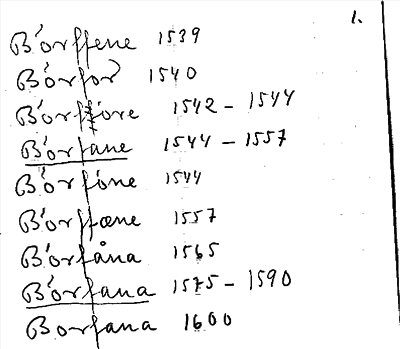 1.
Börffene 1539
Börför 1540
Börffiöre 1542 - 1544
Börfane 1544 - 1557
Börföne 1544
Börfæne 1557
Börfåna 1565
Börfana 1575 - 1590
Borfana 1600